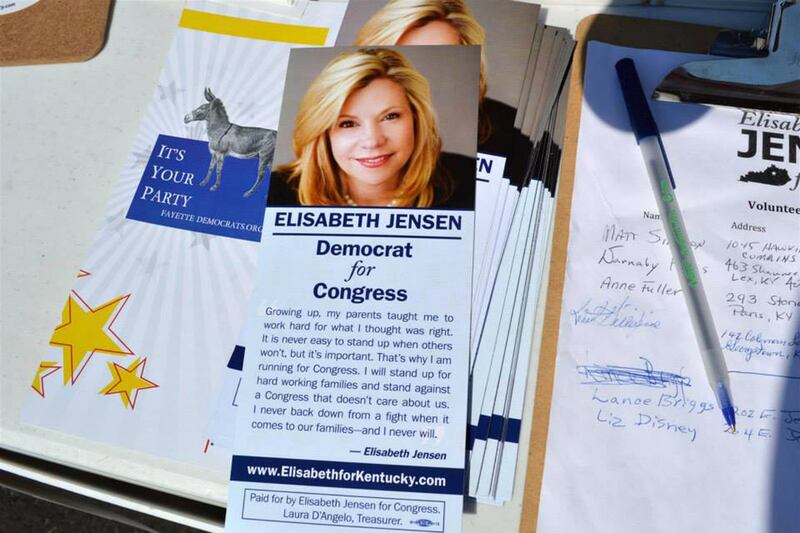 IT'S
YOUR
PARTY
FAYETTE DEMOCRATS.ORG
ELISABETH JENSEN
Democrat
for
Congress
Growing up, my parents taught me to
work hard for what I thought was right.
It is never easy to stand up when others
won't, but it's important. That's why I am
running for Congress. I will stand up for
hard working families and stand against
a Congress that doesn't care about us.
I never back down from a fight when it
comes to our families—and I never will.
— Elisabeth Jensen
www.ElisabethforKentucky.com
Paid for by Elisabeth Jensen for Congress.
Laura D'Angelo, Treasurer.
EN
Elisab
JEN
f
Voluntee
Na
Address
MATT
1045
463
LEX, KY
Anne Fuller
293 Ston
Paris, KY
Lance Briggs
202 E.
Liz Disney
4 E.